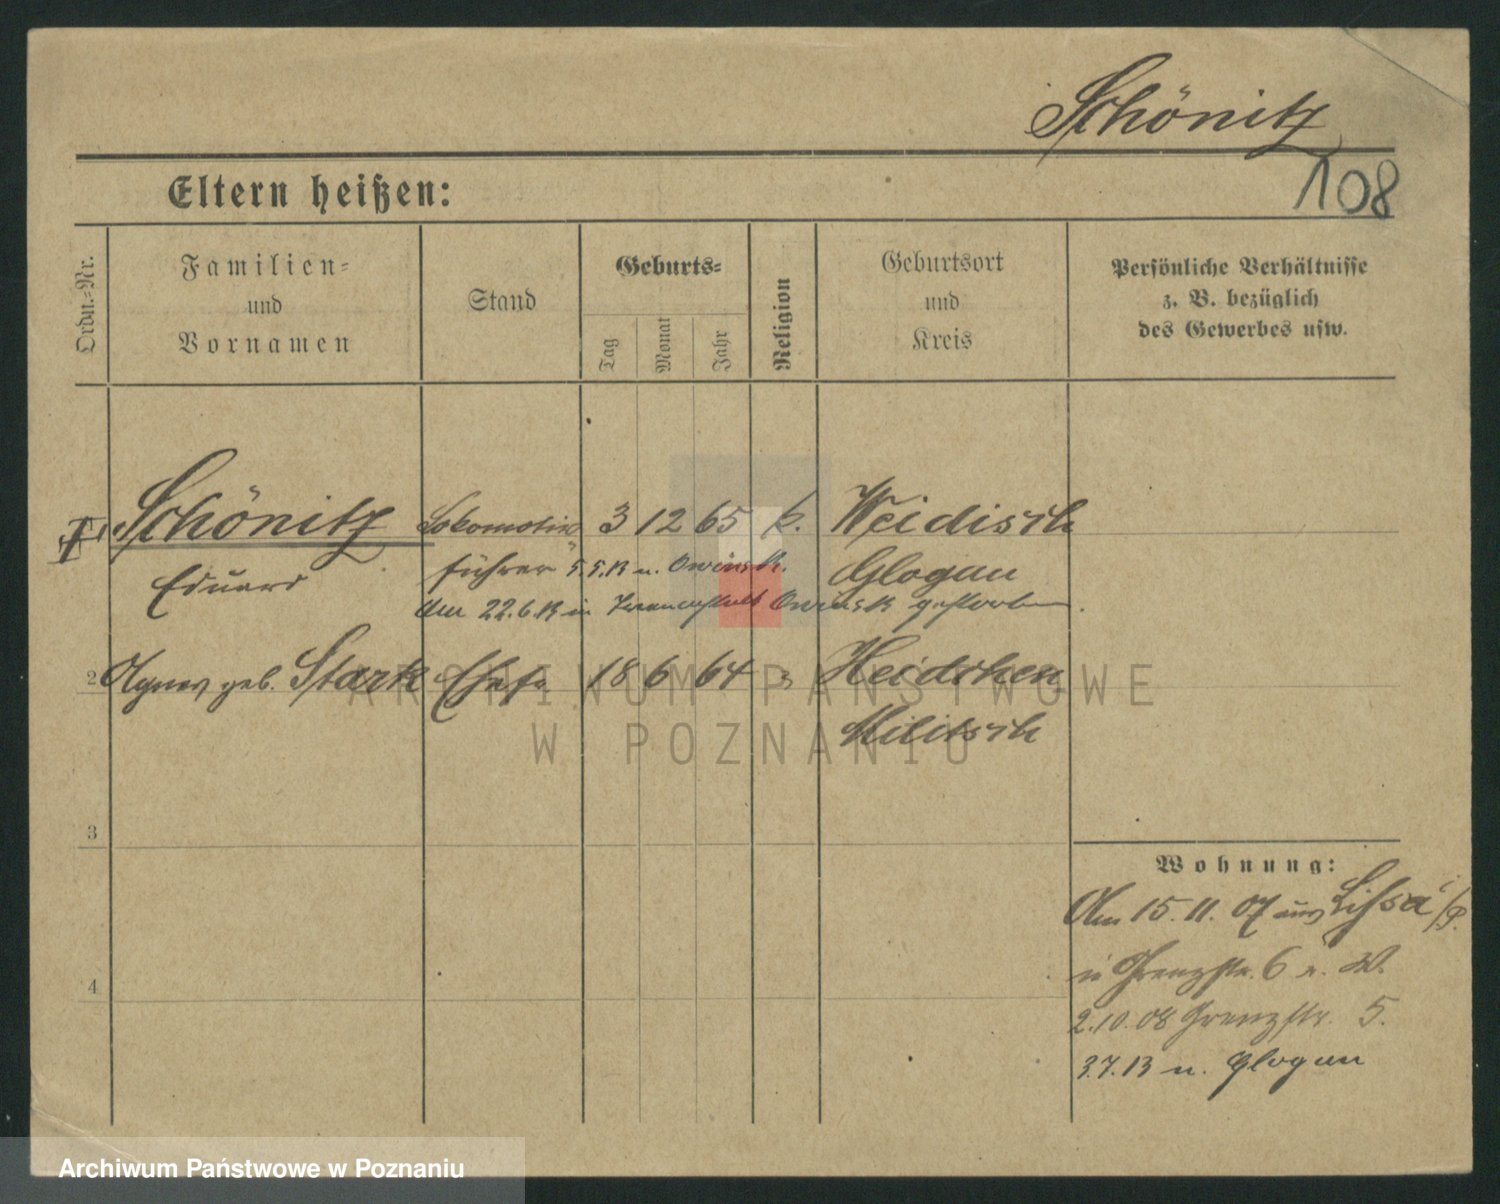 Schönitz
108
Eltern heißen:
Ordn.-Nr.
Familien-
und
Vornamen
Stand
Geburts-
Tag
Monat
Jahr
Religion
Geburtsort
und
Kreis
Persönliche Verhältnisse
z. B. bezüglich
des Gewerbes usw.
Schönitz Lokomotiv 3 12 65 k. Weidisch
Eduard führer 5.5.13 n. Owinsk. Glogau
Am 22.6.13 in Irrenanstalt Owinsk gestorben.
2 Agnes geb. Stark Ehefr. 18 6 64 Heidchen
Militsch
3
Wohnung:
Am 15.11.07 aus Lissa i/P.
Grenzstr. 6 W.
4
2.10.08 Grenzstr. 5.
3.7.13 n. Glogau
ARCHIWUM PAŃSTWOWE
W POZNANIU
Archiwum Państwowe w Poznaniu